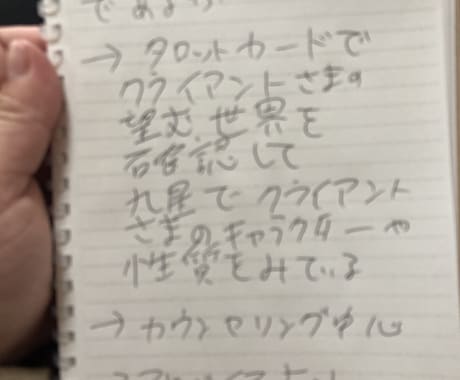 であろう
→ タロットカードで
クライアントさまの
望む世界を
確認して
九星でクライアント
さまのキャラクターや
性質をみている
→ カウンセリング中心